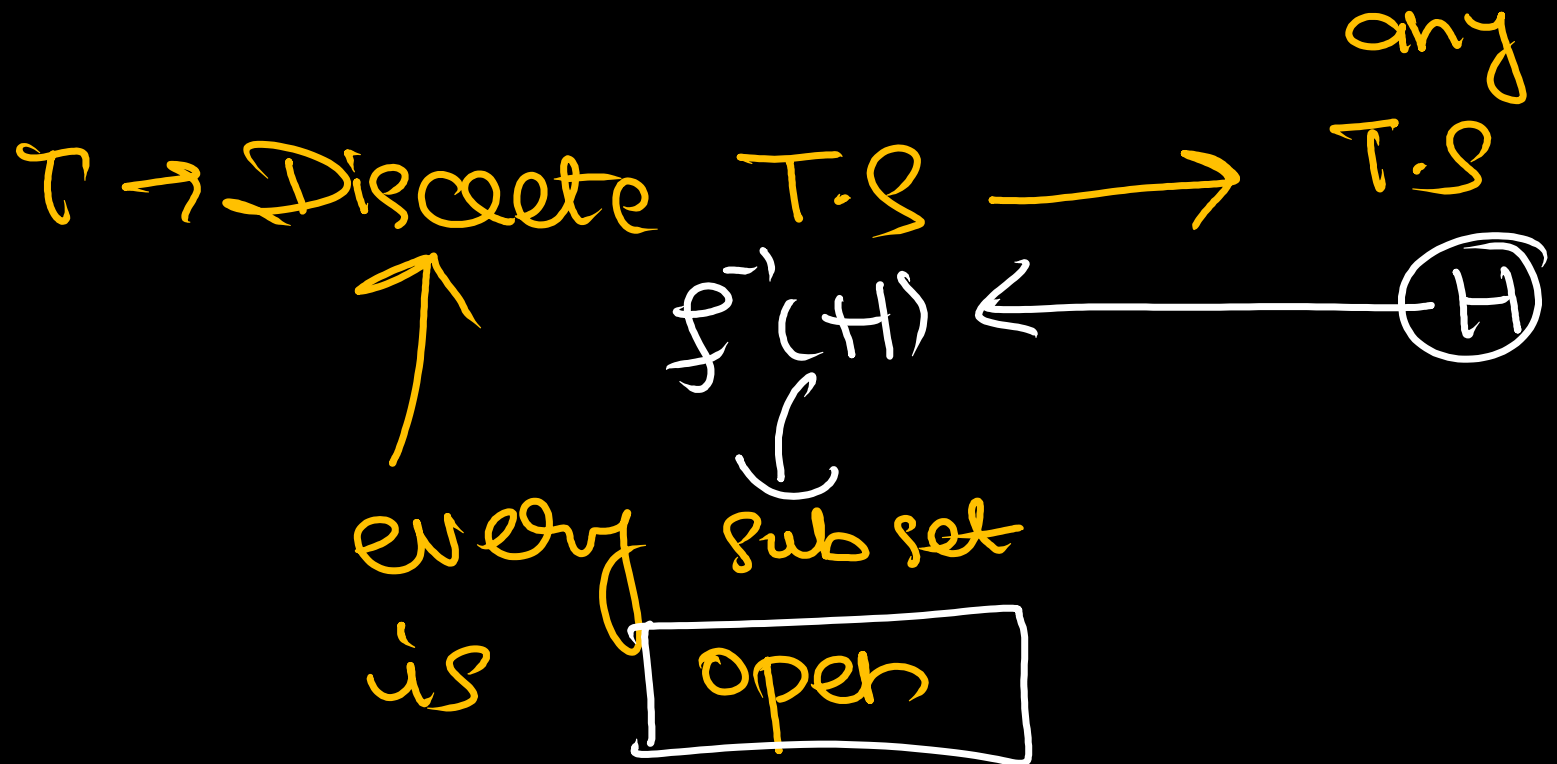 any
T → Discrete T.S → T.S
f⁻¹(H) ← H
every subset
is open